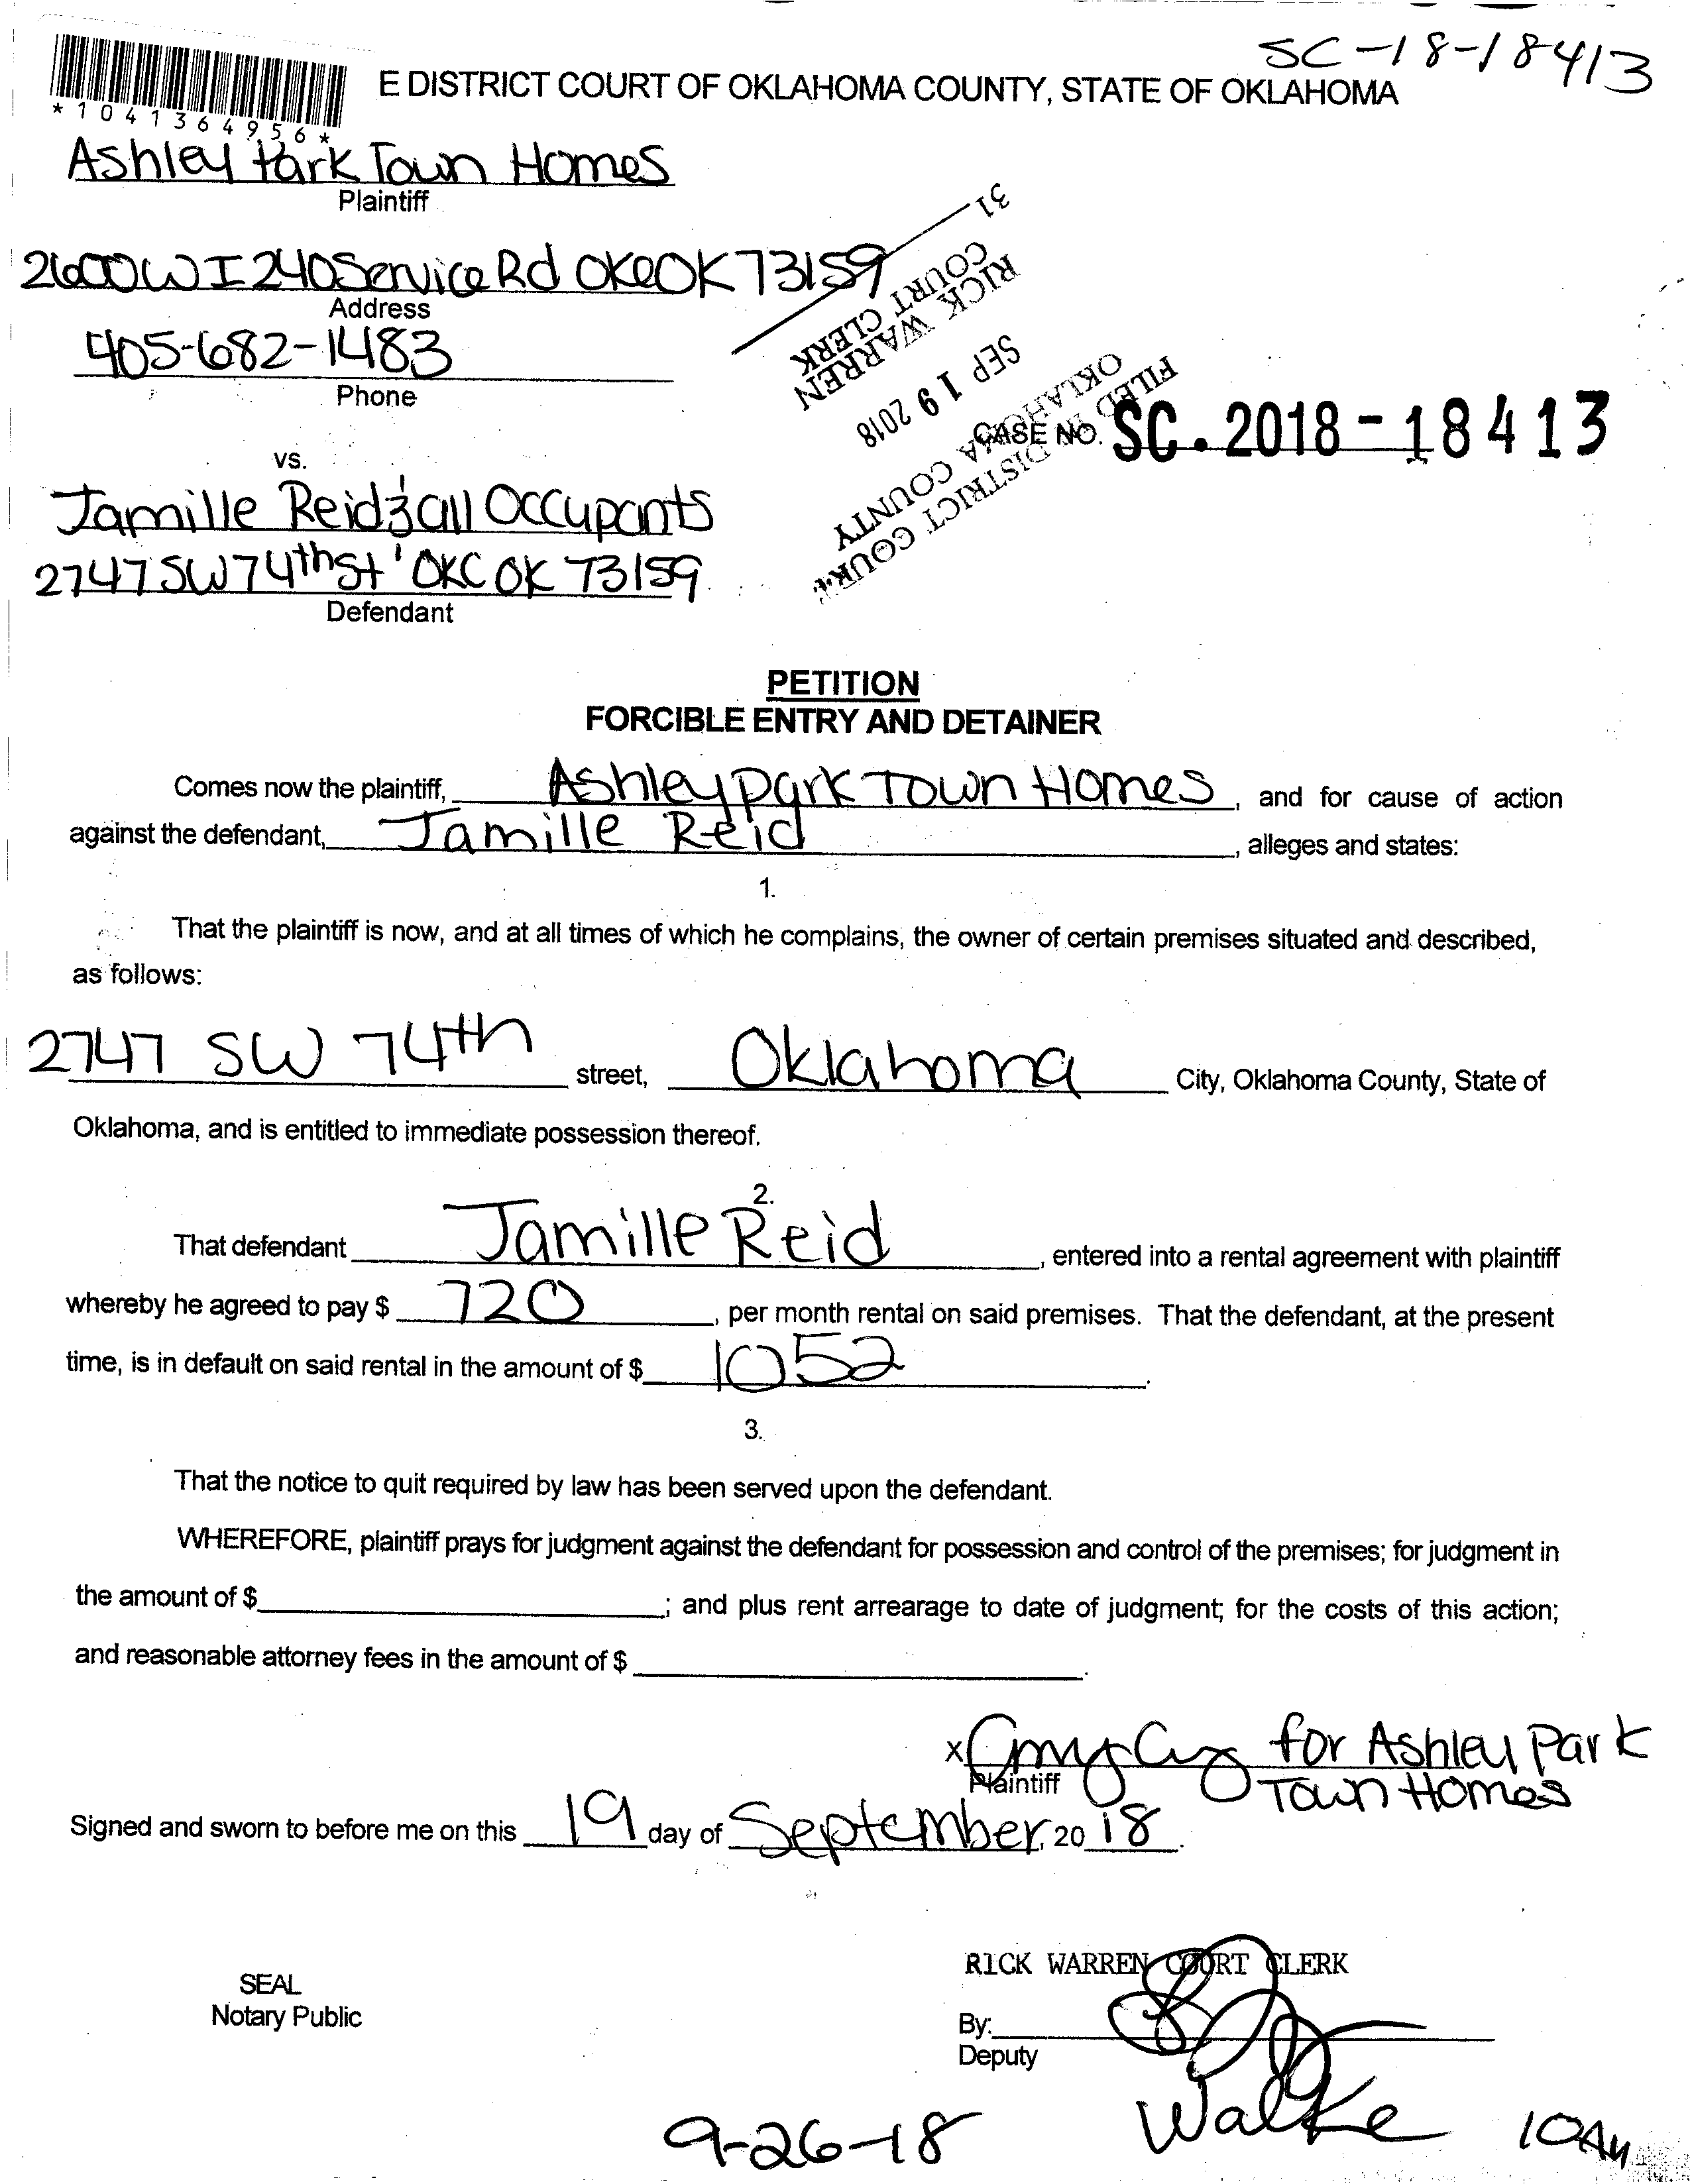 SC-18-18413
E DISTRICT COURT OF OKLAHOMA COUNTY, STATE OF OKLAHOMA
*1041364956*
Ashley Park Town Homes
Plaintiff
2600 W I 240 Service Rd OKC OK 73159
Address
405-682-1483
Phone
31
RICK WARREN
COURT CLERK
SEP 19 2018
FILED IN DISTRICT COURT
OKLAHOMA COUNTY
CASE NO. SC-2018-18413
vs.
Jamille Reid & all Occupants
2747 SW 74th St OKC OK 73159
Defendant
PETITION
FORCIBLE ENTRY AND DETAINER
Comes now the plaintiff, Ashley Park Town Homes, and for cause of action
against the defendant, Jamille Reid, alleges and states:
1.
That the plaintiff is now, and at all times of which he complains, the owner of certain premises situated and described,
as follows:
2747 SW 74th street, Oklahoma City, Oklahoma County, State of
Oklahoma, and is entitled to immediate possession thereof.
2.
That defendant Jamille Reid, entered into a rental agreement with plaintiff
whereby he agreed to pay $ 720, per month rental on said premises. That the defendant, at the present
time, is in default on said rental in the amount of $ 1052.
3.
That the notice to quit required by law has been served upon the defendant.
WHEREFORE, plaintiff prays for judgment against the defendant for possession and control of the premises; for judgment in
the amount of $ ; and plus rent arrearage to date of judgment; for the costs of this action;
and reasonable attorney fees in the amount of $ .
x for Ashley Park
Plaintiff Town Homes
Signed and sworn to before me on this 19 day of September, 20 18.
SEAL
Notary Public
RICK WARREN COURT CLERK
By:
Deputy
Walke
9-26-18
10AM